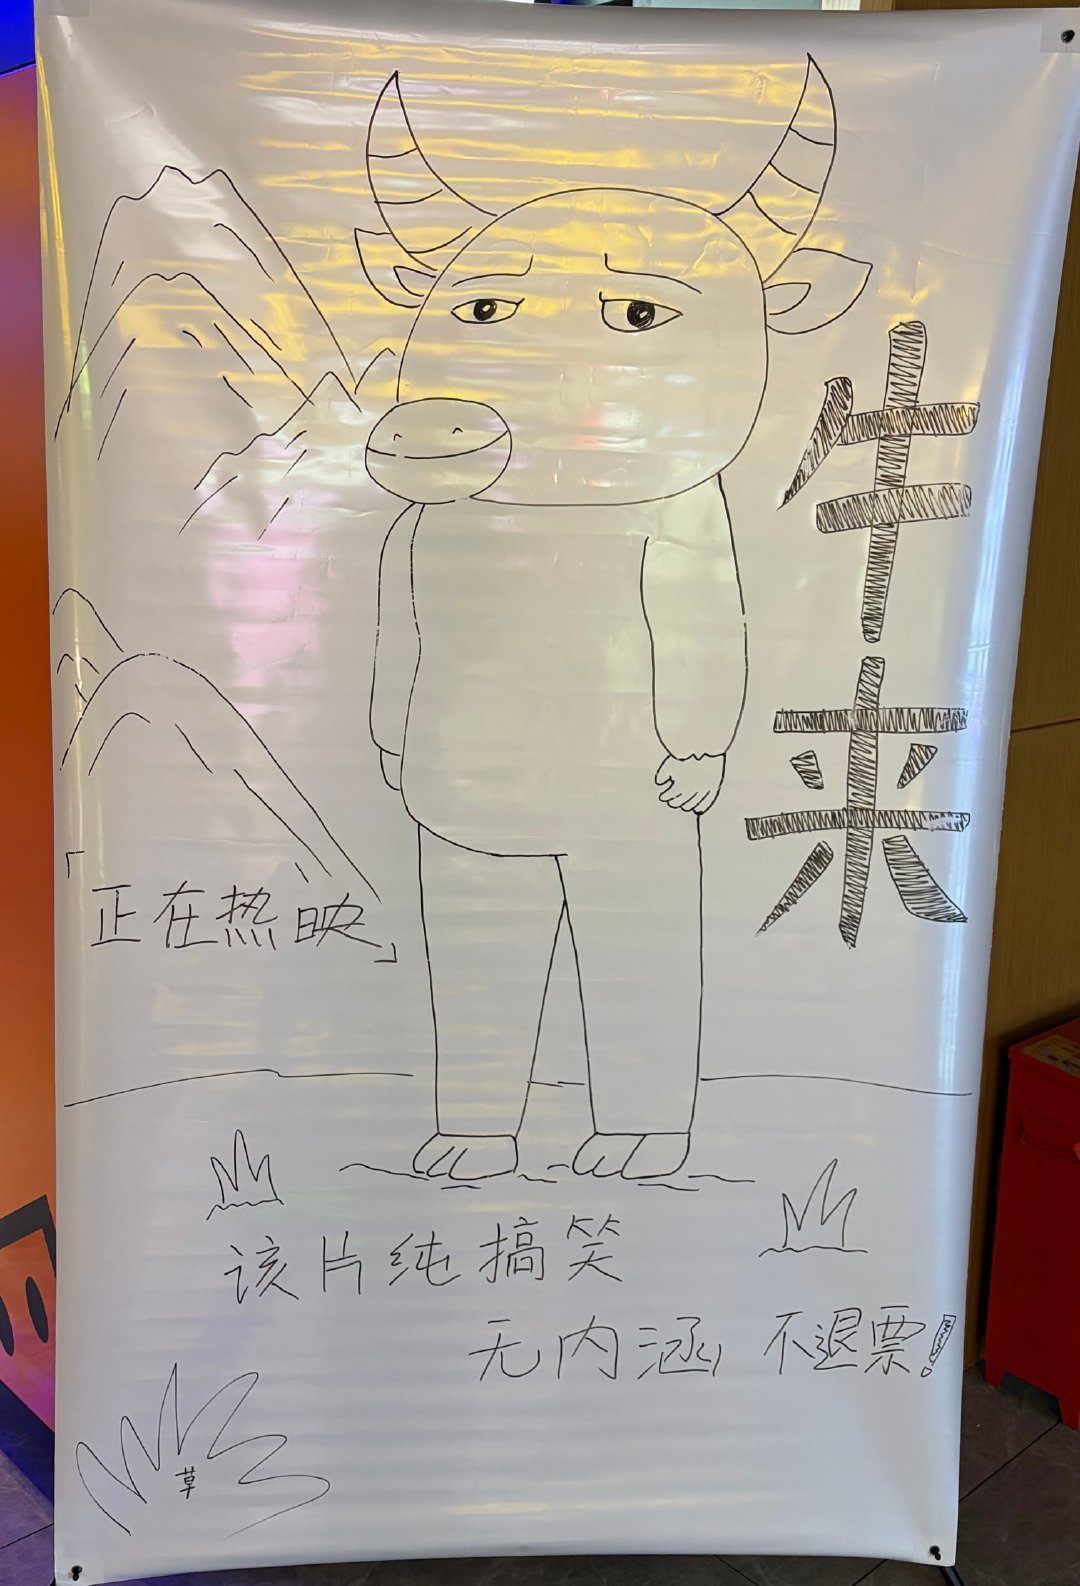 牛来
「正在热映」
该片纯搞笑
无内涵,不退票!
草